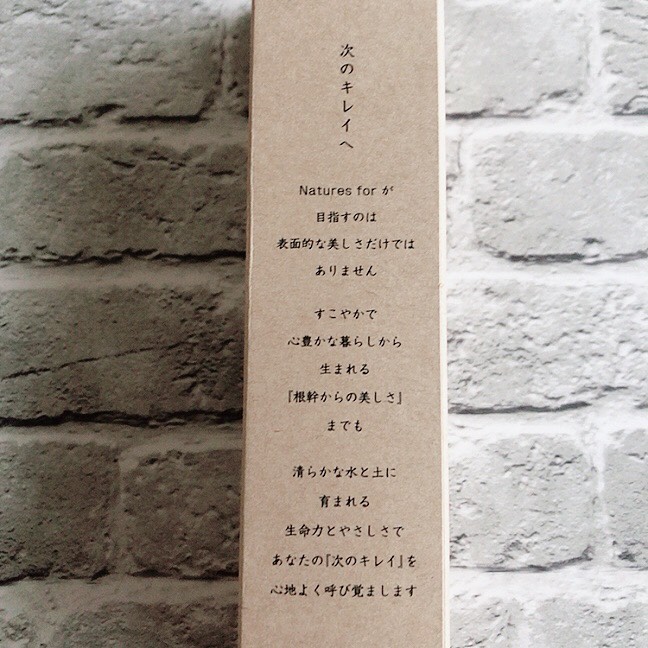 次のキレイへ
Natures for が
目指すのは
表面的な美しさだけでは
ありません
すこやかで
心豊かな暮らしから
生まれる
『根幹からの美しさ』
までも
清らかな水と土に
育まれる
生命力とやさしさで
あなたの『次のキレイ』を
心地よく呼び覚まします